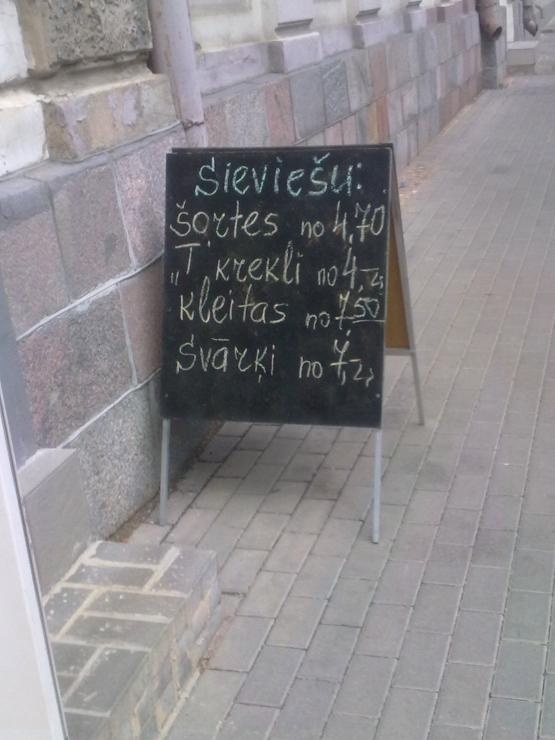 Sieviešu:
šortes no 4,70
„T, krekli no 4,-
kleitas no 7,50
svārķi no 7,-